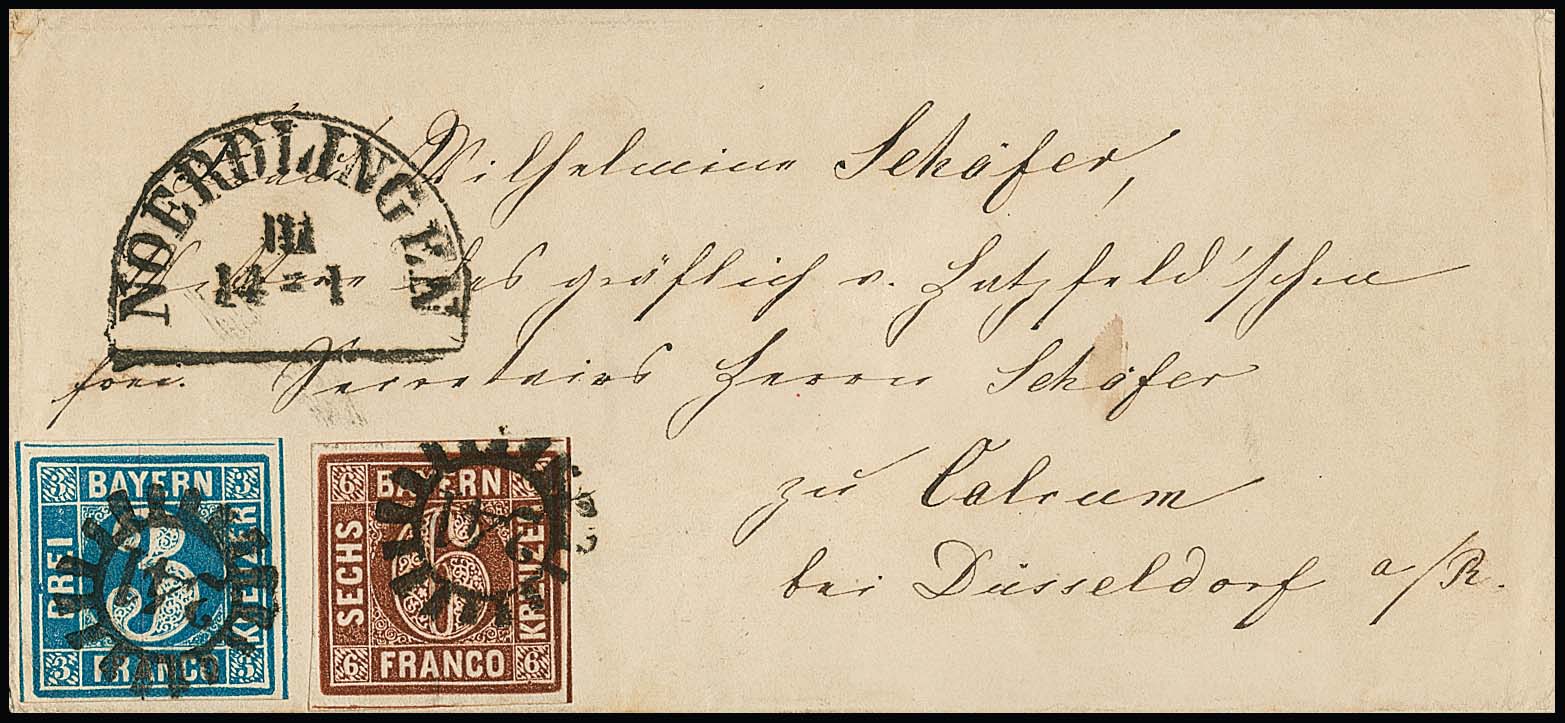 NOERDLINGEN
III
14 = 1
Wilhelmine Schäfer,
des gräflich v. Hatzfeld'schen
frei. Secretairs Herrn Schäfer
zu Calcum
bei Düsseldorf a/R.
3 BAYERN 3
DREI
KREUZER
3 FRANCO 3
6 BAYERN 6
SECHS
KREUZER
6 FRANCO 6